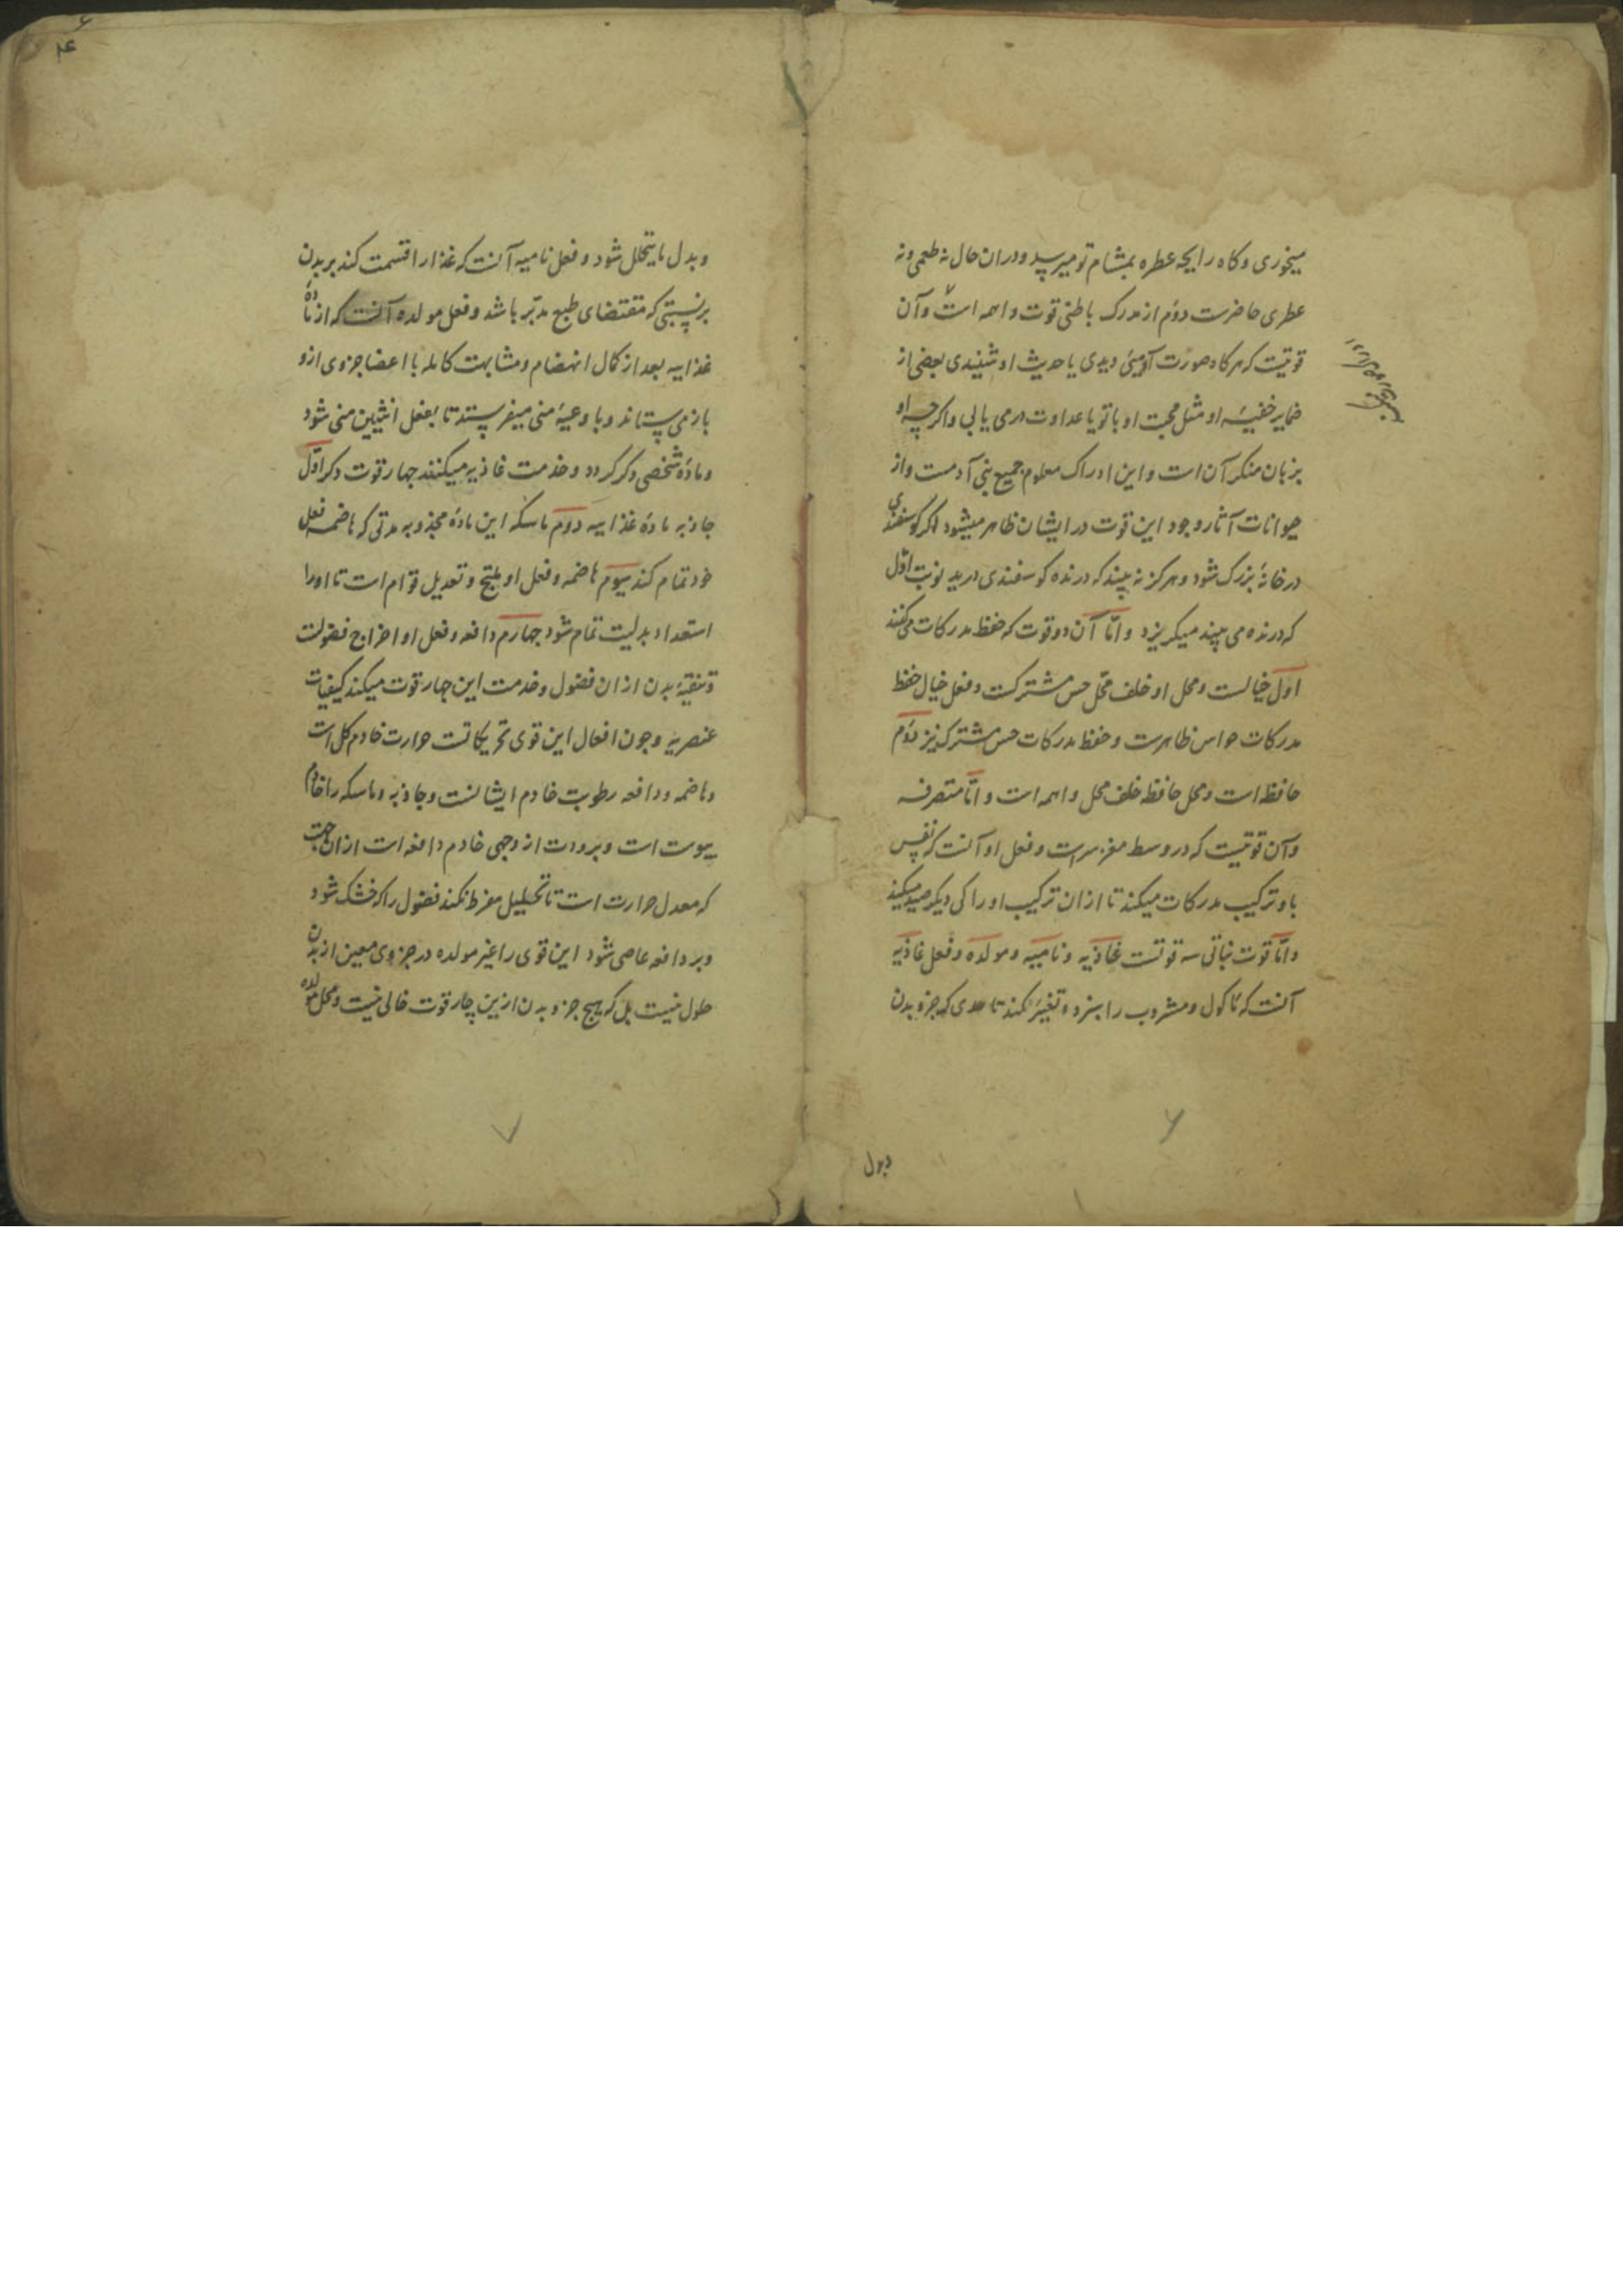 میخوری و کاه رایحه عطره بمشام تو میرسد و دران حال نه طعمی و نه
عطری حاضرست دوم از مدرک باطنی قوت واهمه است و آن
قوتیست که هرکاه صورت آدمیی دیدی یا حدیث او شنیدی بعضی از
ضمایر خفیه او مثل محبت او با تو یا عداوت درمی یابی و اکرچه او
بزبان منکر آن است و این ادراک معلوم جمیع بنی آدمست و از
حیوانات آثار وجود این قوت در ایشان ظاهر میشود اکر کوسفندی
در خانه بزرک شود و هرکز نه بیند که درنده کوسفندی درید نوبت اول
که درنده می بیند میکریزد و امّا آن دو قوت که حفظ مدرکات می کنند
اول خیالست و محل او خلف محل حس مشترکست و فعل خیال حفظ
مدرکات حواس ظاهرست و حفظ مدرکات حس مشترک نیز دوم
حافظه است و محل حافظه خلف محل واهمه است و امّا متصرفه
و آن قوتیست که در وسط مغز سرست و فعل او آنست که نفس
باو ترکیب مدرکات میکند تا ازان ترکیب اوراکی دیکر صید میکند
و امّا قوت نباتی سه قوتست غاذیه و نامیه و مولده و فعل غاذیه
آنست که ماکول و مشروب را بپزد و تغییر کند تا حدی که جزو بدن
وبدل
۶
و بدل مایتحلل شود و فعل نامیه آنست که غذا را قسمت کند بر بدن
بر نسبتی که مقتضای طبع مدبّر باشد و فعل مولده آنست که از مادهٔ
غذاییه بعد از کمال انهضام و مشابهت کامله با اعضا جزوی ازو
باز می ستاند و باوعیهٔ منی میفرستد تا بفعل انثیین منی شود
و مادهٔ شخصی دکر کردد و خدمت غاذیه میکنند چهار قوت دکر اوّل
جاذبه مادهٔ غذاییه دوم ماسکه این مادهٔ مجذوبه مدتی که هاضمه فعل
خود تمام کند سیوم هاضمه و فعل او طبخ و تعدیل قوام است تا او را
استعداد بدلیت تمام شود چهارم دافعه و فعل او اخراج فضولست
و تنقیهٔ بدن ازان فضول و خدمت این چهار قوت میکند کیفیات
عنصریه و چون افعال این قوی تحریکاتست حرارت خادم کل است
و هاضمه و دافعه رطوبت خادم ایشانست و جاذبه و ماسکه را خادم
یبوست است و برودت از وجهی خادم دافعه است ازان جهت
که معدل حرارت است تا تحلیل مفرط نکند فضول را که خشک شود
و بر دافعه عاصی شود این قوی را غیر مولده در جزوی معین از بدن
حلول نیست بل که هیچ جزو بدن ازین چار قوت خالی نیست و محل مولده
۷